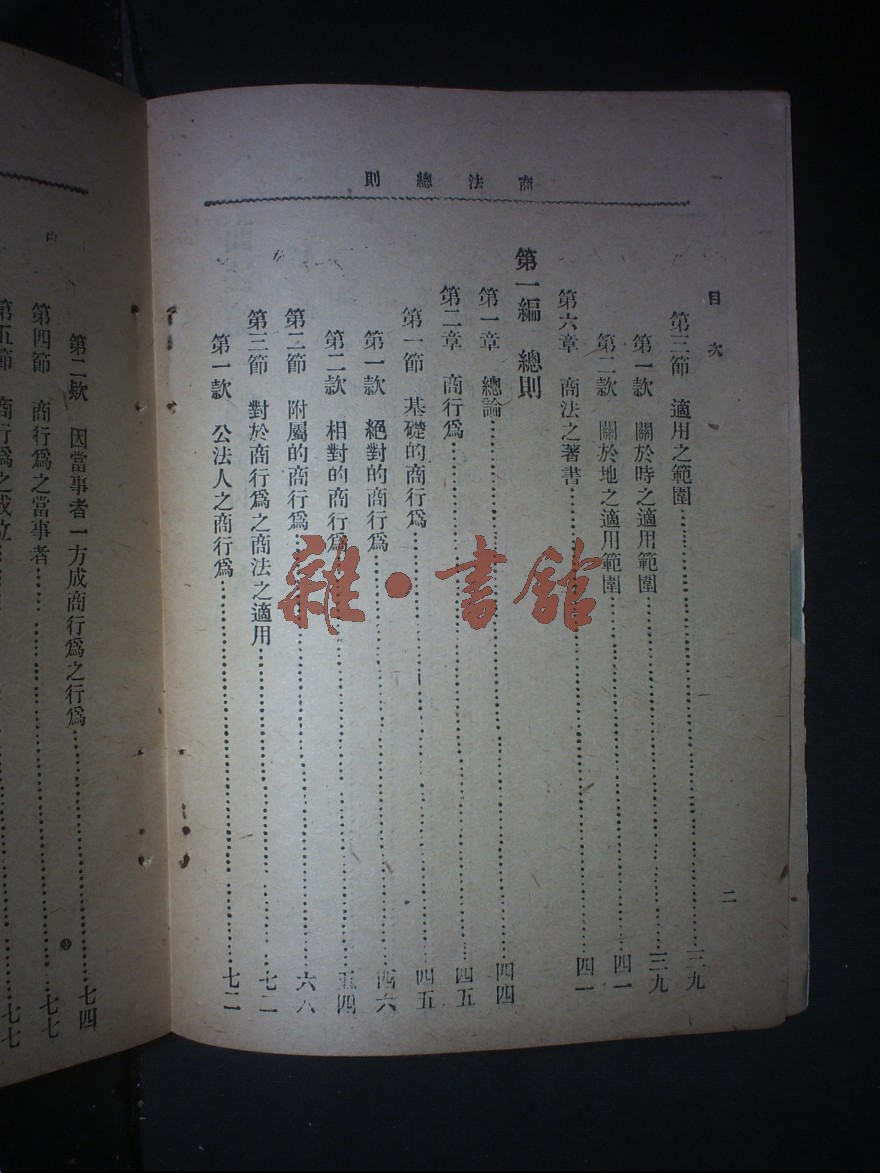 商法總則
目次
二
第三節 適用之範圍……三九
第一款 關於時之適用範圍……三九
第二款 關於地之適用範圍……四一
第六章 商法之著書……四一
第一編 總則
第一章 總論……四四
第二章 商行爲……四五
第一節 基礎的商行爲……四五
第一款 絕對的商行爲……四六
第二款 相對的商行爲……五四
第二節 附屬的商行爲……六八
第三節 對於商行爲之商法之適用……七二
第一款 公法人之商行爲……七二
第二款 因當事者一方成商行爲之行爲……七四
第四節 商行爲之當事者……七七
第五節 商行爲之成立……七七
雜·書館